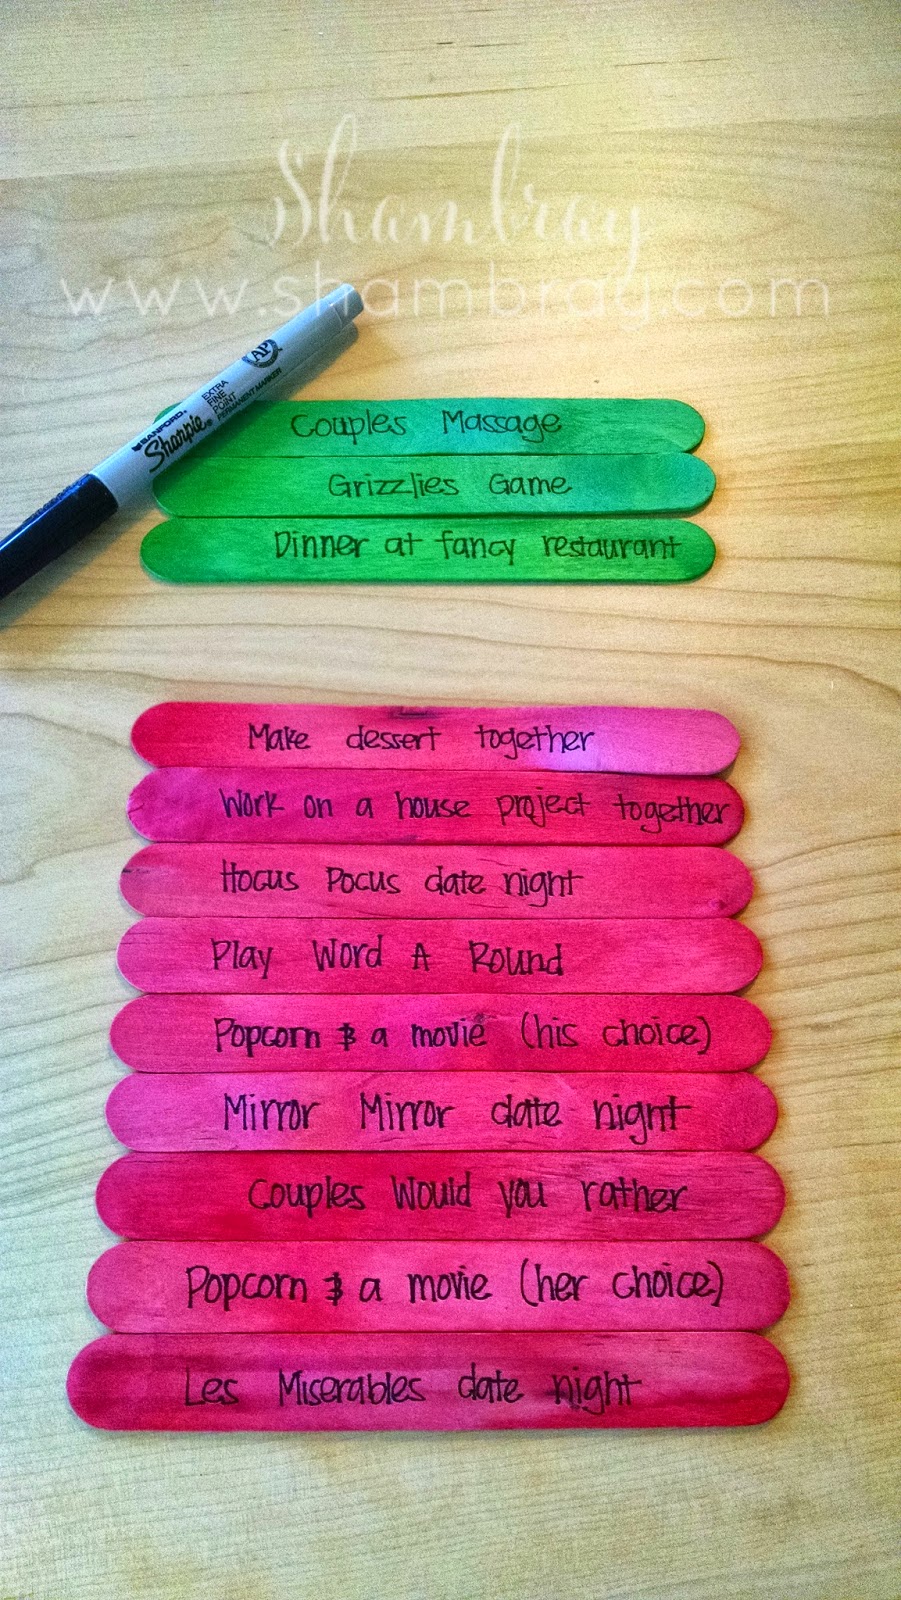 Shambray
www.shambray.com
SANFORD®
Sharpie®
EXTRA
FINE
POINT
PERMANENT MARKER
AP
Couples Massage
Grizzlies Game
Dinner at fancy restaurant
Make dessert together
Work on a house project together
Hocus Pocus date night
Play Word A Round
Popcorn & a movie (his choice)
Mirror Mirror date night
Couples Would you rather
Popcorn & a movie (her choice)
Les Miserables date night